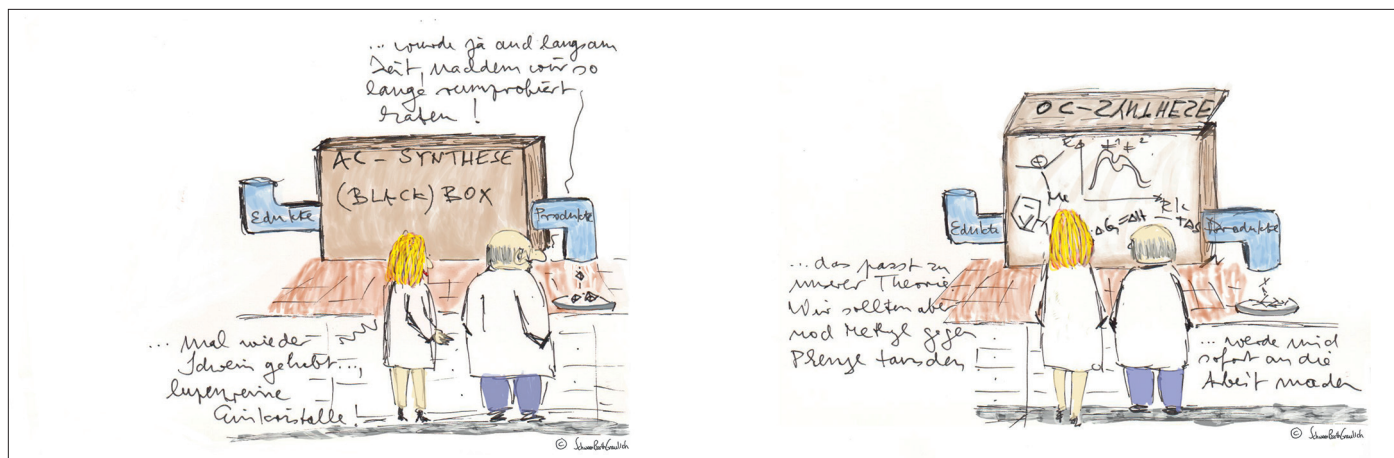 ... wurde ja auch langsam
Zeit, nachdem wir so
lange rumprobiert
haben !
AC - SYNTHESE
(BLACK) BOX
Edukte
Produkte
... mal wieder
Schwein gehabt...,
lupenreine
Einkristalle !
©
OC-SYNTHESE
E
⊕
‡¹ ‡²
Me
R/c
ΔG = ΔH - TΔS
Edukte
Produkte
... das passt zu
unserer Theorie.
Wir sollten aber
noch Methyl gegen
Phenyl tauschen !
... werde mich
sofort an die
Arbeit machen
©